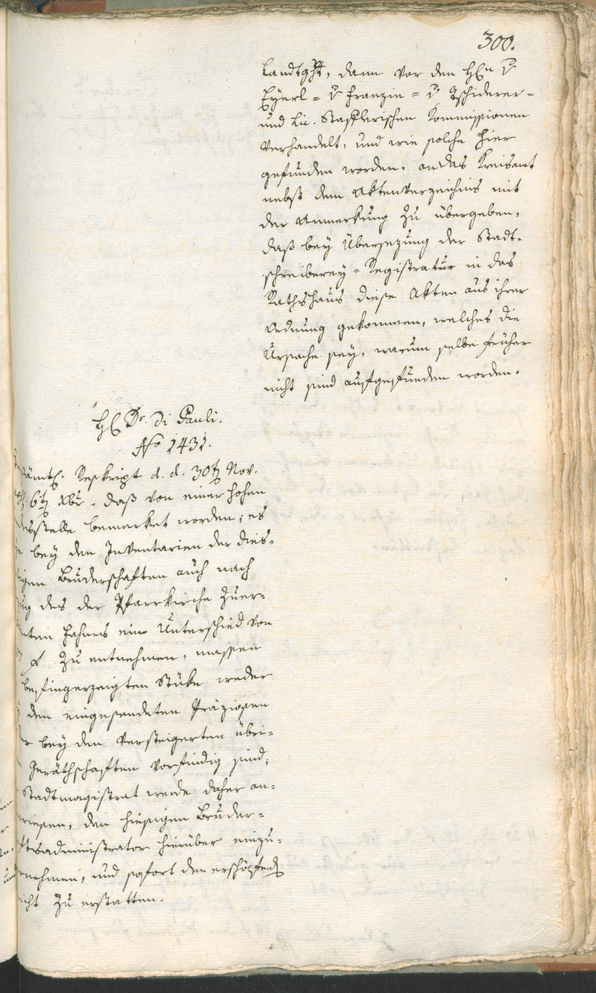 300.
Landtght, dann vor den Hℓn v
Eyerl= v Franzin= v Tschiderer=
und Lic. Staflerischen Kommissionen
verhandelt, und wie solche hier
gefunden worden, an das Kreisamt
nebst dem Aktenverzeichnis mit
der Anmerkung zu übergeben,
daß bey Übersezung der Stadt-
schreiberey-Registratur in das
Rathshaus diese Akten aus ihrer
Ordnung gekommen, welches die
Ursache sey, warum selbe früher
nicht sind aufgefunden worden.
Hℓ Dr. Di Pauli.
No 1431.
ämtℓ. Reskript d. d. 30t Nov.
6t Xbr. daß von einer hohen
desstelle bemerket worden, es
bey den Inventarien der dies-
igen Bruderschaften auch nach
ug des der Pfarrkirche zuer-
nten Fahnis ein Unterschied von
f zu entnehmen, massen
befingerzeigten Stüke weder
den eingesendeten Präziosen
r bey den versteigerten übri-
Geräthschaften vorfindig sind,
Stadtmagistrat werde daher an-
wiesen, den hiesigen Bruder-
ftsadministrator hierüber einzu-
rnehmen, und sofort den erschöpfed
icht zu erstatten.